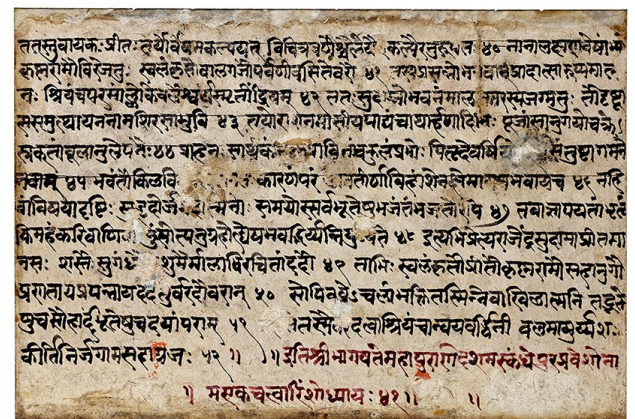 ततस्तुवायकः प्रीतः तयोर्वेषमकल्पयत् विचित्रवर्णैश्चैलेयै कल्पैरनुरूपतः ४० नानालक्षणवेषाभ्यां
कृष्णरामौविरेजतुः स्वलंकृतौवालगजौपर्वणीवसितेतरौ ४१ प्रसन्नोभगवान्प्रादात्सारूप्यमात्म
नः श्रियंचपरमांलोकेबलैश्वर्यस्मृतींद्रियम् ४२ ततः सुदाम्नोभवनंमालाकारस्यजग्मतुः तौदृष्ट्वा
ससमुत्थायननामशिरसाभुवि ४३ तयोरासनमानीयपाद्यंचार्घ्यार्हणादिभिः पूजांसानुगयोश्चक्रे
स्रक्तांबूलानुलेपनैः ४४ प्राहनः सार्थकं पावितंचकुलंप्रभो पितृदेवर्षयो तुष्टाह्यागमनेन
४५ भवंतौकिलवि कारणंपरं अवतीर्णाविहांशेनक्षेमायचभवायच ४६ नहि
वांविषयादृष्टिः सुहृदोर्ज त्मनोः समयोस्सर्वभूतेषुभजंतंभजतोरपि ४७ तावाज्ञापयतंभृत्यं
किमहंकरवाणिवां पुंसोत्यनुग्रहोह्येषभवद्भिर्यन्नियुज्यते ४८ इत्यभिप्रेत्यराजेंद्रसुदामाप्रीतमा
नसः शस्तैः सुगंधैः कुसुमैर्मालाविरचिताददौ ४९ ताभिः स्वलंकृतौप्रीतौकृष्णरामौसहानुगौ
प्रणतायप्रपन्नायददतुर्वरदौवरान् ५० सोपिवव्रेऽचलांभक्तिंतस्मिन्नेवाखिलात्मनि तद्भक्ते
षुचसौहार्दंभूतेषुचदयांपराम् ५१ तस्मै दत्वाश्रियंचान्वयवर्द्धिनीं बलमायुर्यशः
कींतिंनिर्जगामसहाग्रजः ५२ ॥ ॥ इतिश्रीभागवतेमहापुराणेदशमस्कंधेपुरप्रवेशोना
॥ मएकचत्वारिंशोध्यायः ४१ ॥ ॥